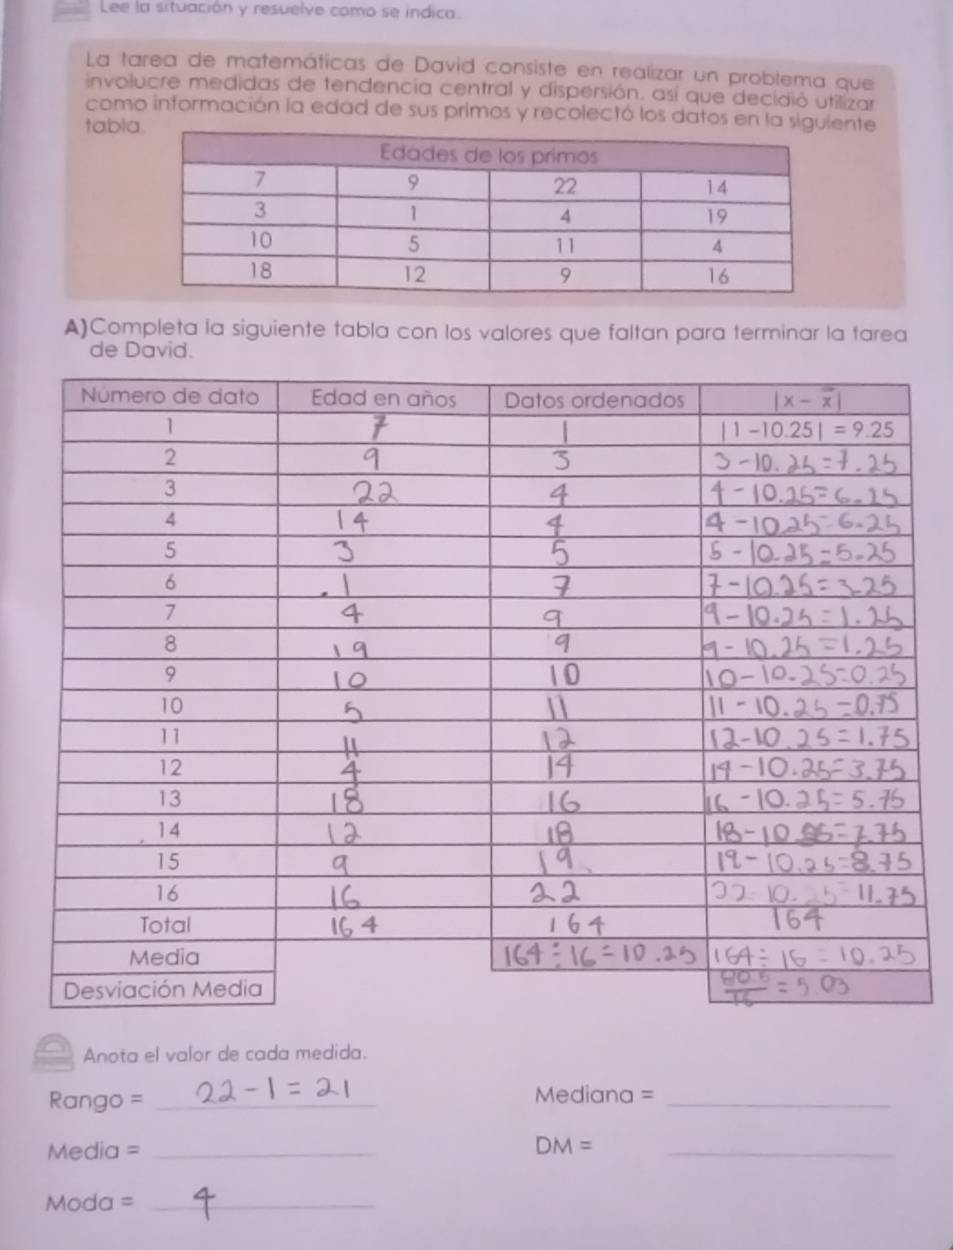 Lee la situación y resuelve como se indica.
La tarea de matemáticas de David consiste en realizar un problema que
involucre medidas de tendencia central y dispersión, así que decidió utilizar
como información la edad de sus primos y recolectó los datos en la siguiente
tabla.
Edades de los primos
7 9 22 14
3 1 4 19
10 5 11 4
18 12 9 16
A) Completa la siguiente tabla con los valores que faltan para terminar la tarea
de David.
Número de dato Edad en años Datos ordenados |x - x̅|
1 7 1 |1 -10.25| = 9.25
2 9 3 3-10.25=7.25
3 22 4 4-10.25=6.25
4 14 4 4-10.25=6.25
5 3 5 5-10.25=5.25
6 1 7 7-10.25=3.25
7 4 9 9-10.25=1.25
8 19 9 9-10.25=1.25
9 10 10 10-10.25=0.25
10 5 11 11-10.25=0.75
11 11 12 12-10.25=1.75
12 4 14 14-10.25=3.75
13 18 16 16-10.25=5.75
14 12 18 18-10.25=7.75
15 9 19 19-10.25=8.75
16 16 22 22-10.25=11.75
Total 164 164 164
Media 164÷16=10.25 164÷16=10.25
Desviación Media 80.5/16 = 5.03
Anota el valor de cada medida.
Rango = 22-1=21 Mediana =
Media = DM =
Moda = 4